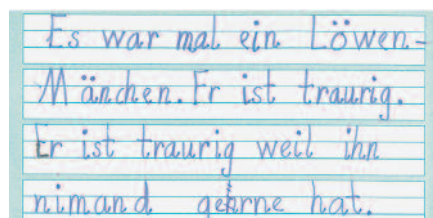 Es war mal ein Löwen-
Mänchen. Er ist traurig.
Er ist traurig weil ihn
nimand gerne hat.